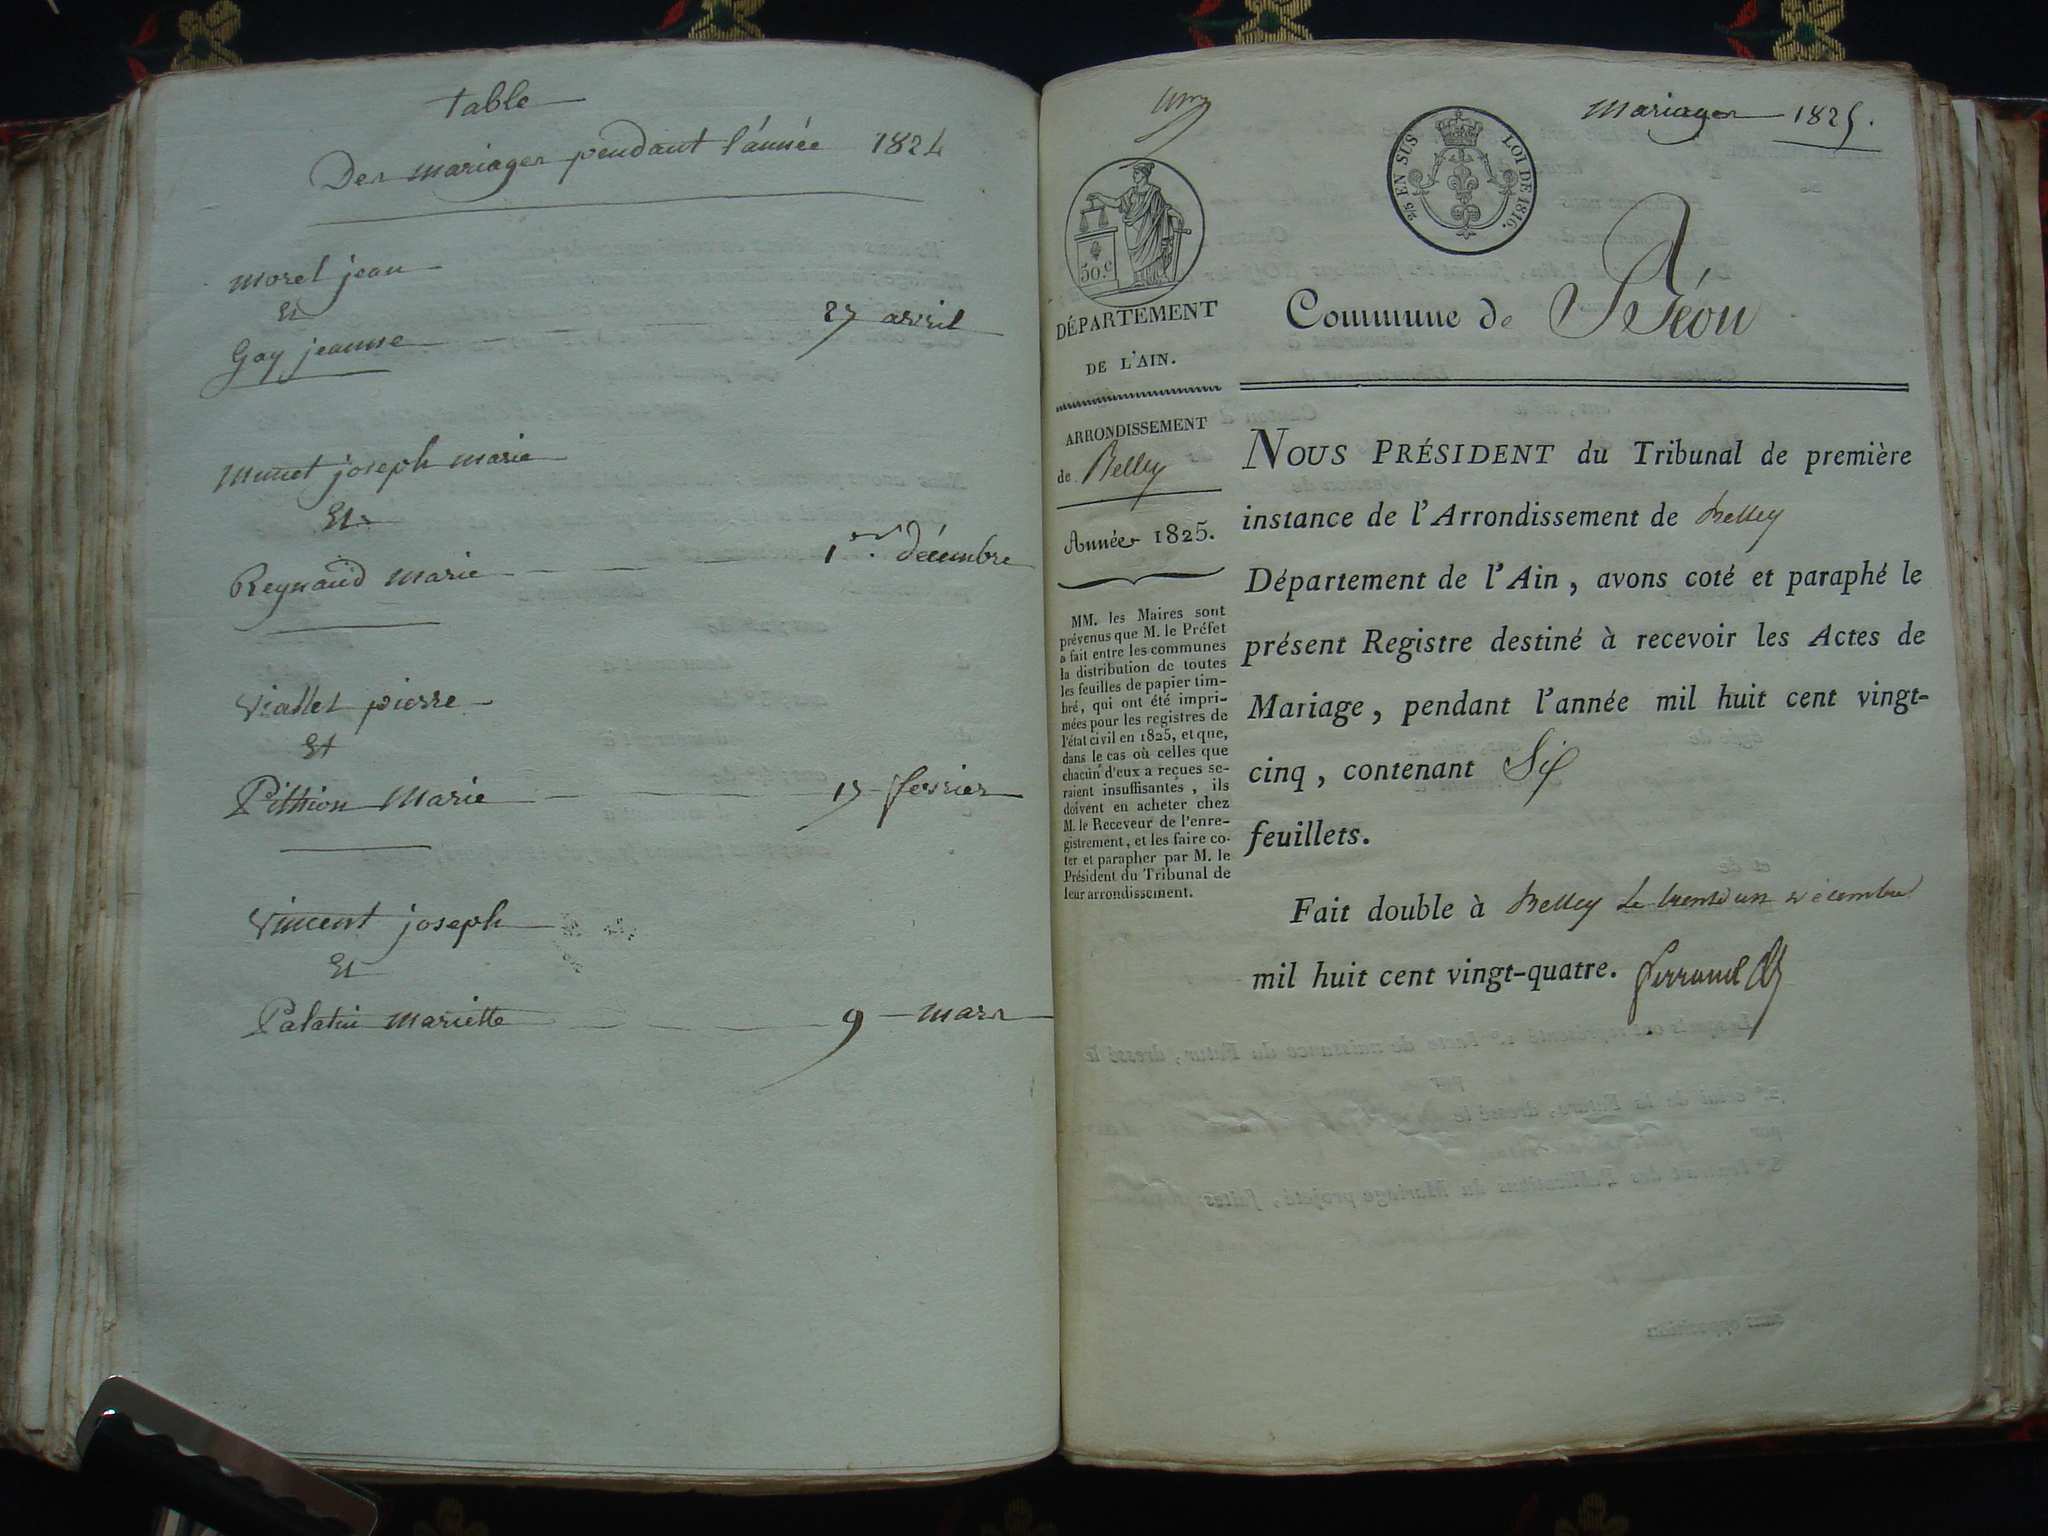 table
Des mariages pendant l'année 1824
morel jean
Et
Gay jeanne 27 avril
Munet joseph marie
Et
Reynaud marie 1er décembre
Viallet pierre
Et
Pithion Marie 17 fevrier
Vincent joseph
Et
Palatin mariette 9 mars
Mariages 1825.
25 EN SUS LOI DE 1816.
50.c
DÉPARTEMENT
DE L'AIN.
ARRONDISSEMENT
de Belley
Année 1825.
MM. les Maires sont
prévenus que M. le Préfet
a fait entre les communes
la distribution de toutes
les feuilles de papier tim-
bré, qui ont été impri-
mées pour les registres de
l'état civil en 1825, et que,
dans le cas où celles que
chacun d'eux a reçues se-
raient insuffisantes, ils
doivent en acheter chez
M. le Receveur de l'enre-
gistrement, et les faire co-
ter et parapher par M. le
Président du Tribunal de
leur arrondissement.
Commune de Béon
NOUS PRÉSIDENT du Tribunal de première
instance de l'Arrondissement de Belley
Département de l'Ain, avons coté et paraphé le
présent Registre destiné à recevoir les Actes de
Mariage, pendant l'année mil huit cent vingt-
cinq, contenant Six
feuillets.
Fait double à Belley le trente un décembre
mil huit cent vingt-quatre.